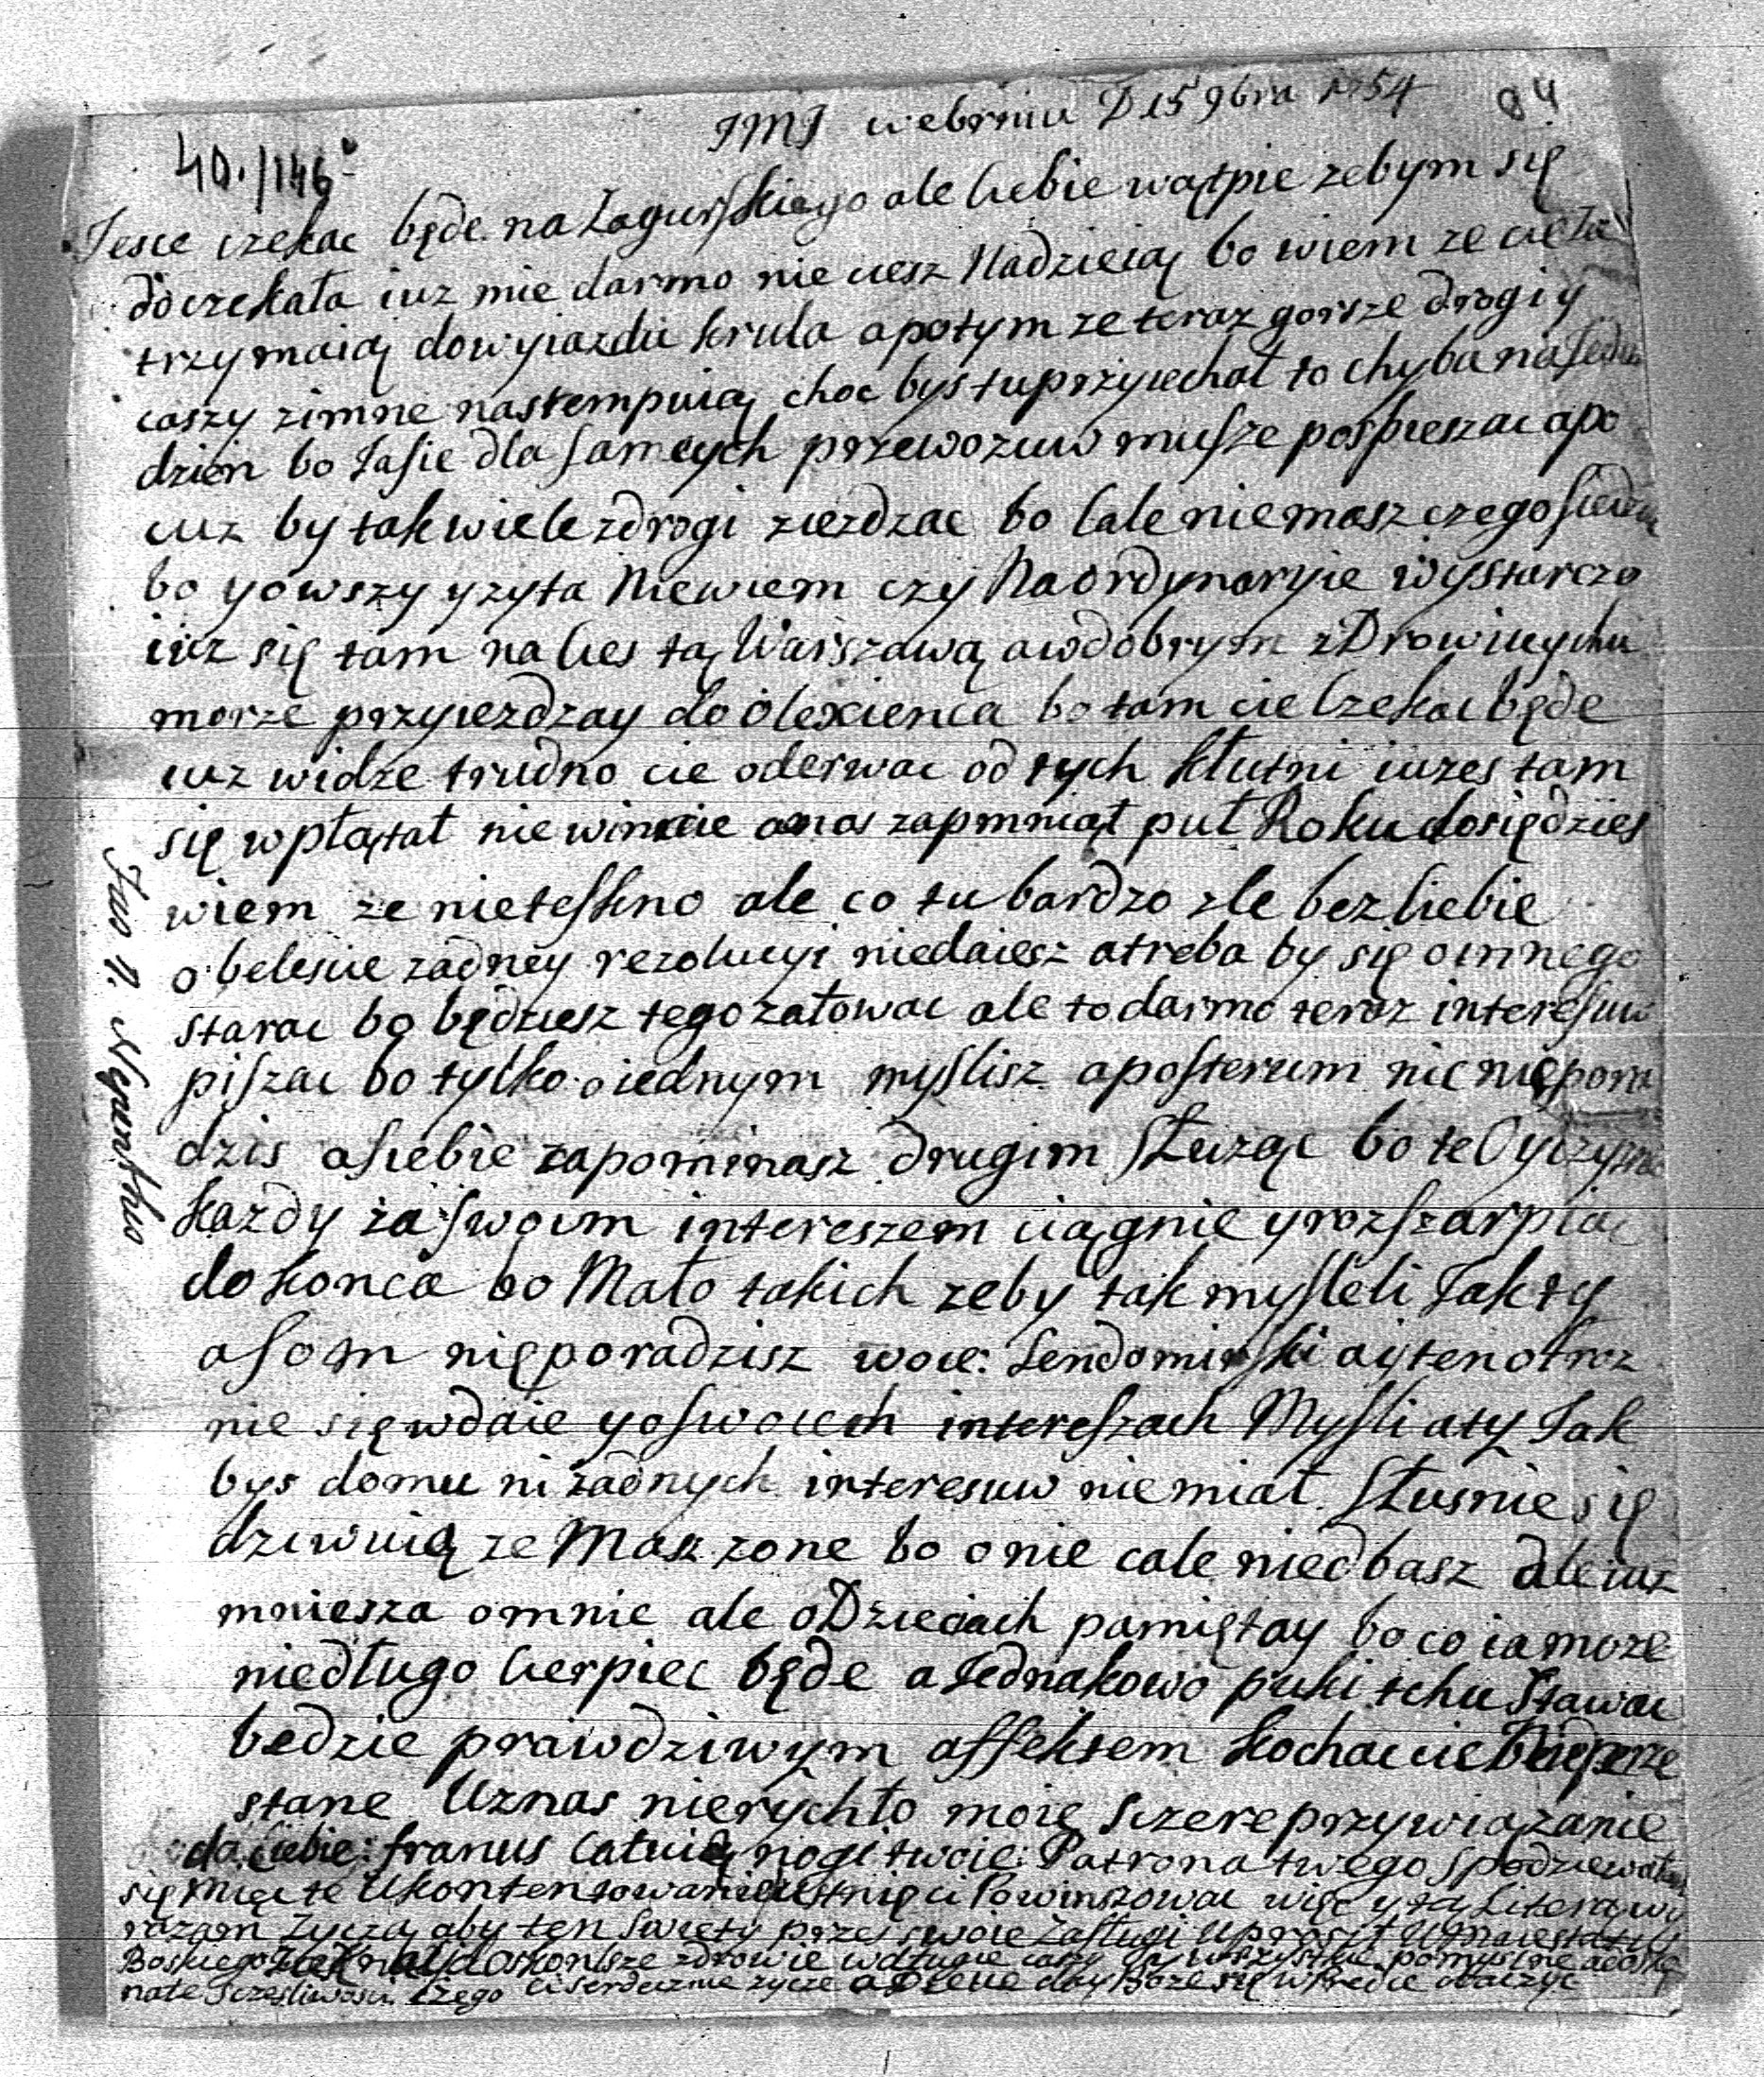 JMJ webrniu D 15 9bra 1754 84
40./146
Jesce czekac będe na Zagurskiego ale Ciebie wątpie zebym się
doczekała iuz mie darmo nie ciesz Nadzieią bo wiem ze cie tu
trzymaią do wyiazdu krula a potym ze teraz gorsze drogi y
czaszy zimne nastempuią choc bys tu przyiechał to chyba na Jeden
dzien bo Ja sie dla samych przewozuw musze pospieszac a po
cuz by tak wiele z drogi ziezdzac bo Cale nie masz czego
bo y owszy y zyta Niewiem czy Na ordynaryie wystarczo
iuz się tam na Cies tą Warszawą a w dobrym zDrowiu
morze przyiezdzay do Olexienca bo tam cie Czekac będe
iuz widze trudno cie oderwac od tych kłutni iuzes tam
się wplątał nie winnie a nas zapmniał puł Roku dosiędzies
wiem ze nie teskno ale co tu bardzo zle bez Ciebie
o belesie zadney rezolucyi niedaiesz a treba by się o innego
starac bo będziesz tego załowac ale to darmo teraz interesuw
piszac bo tylko o iednym myslisz a posterum nic nię pora
dzis a Siebie zapominasz drugim Słuząc bo te Oyczyzne
kazdy za swoim intereszem ciągnie y rozszarpią
do konca bo Mało takich zeby tak mysleli Jak ty
a som nię poradzisz woie: Sendomirski a y ten o troz
nie się wdaie y o swoiech intereszach Mysli a ty Jak
bys domu ni zadnych interesuw nie miał. Słusnie się
dziwuią ze Masz zone bo o nie cale niedbasz ale iuz
mniesza o mnie ale o Dzieciach pamiętay bo co ia moze
niedługo Cierpiec będe a Jednakowo puki tchu Stawac
bedzie prawdziwym affektem kochac cie Nię prze
stane Uznas nierychło moię Szczere przywiązanie
do Ciebie: franus Całuią nogi twoie: Patrona twego spodziewałam
się Mięc te Ukontentowanię ustnię ci Powinszowac więc y tą Literą wy
razam Zyczą aby ten Swiety przes swoie Zasługi Uprosił U Maiestatu
Boskiego iak nay doskonsze zdrowie w długie czasy y wszystkie pomyslne
nałe Sczęsliwosci Czego ci serdecznie zycze a Dieue day Boze się w krutce obaczyc